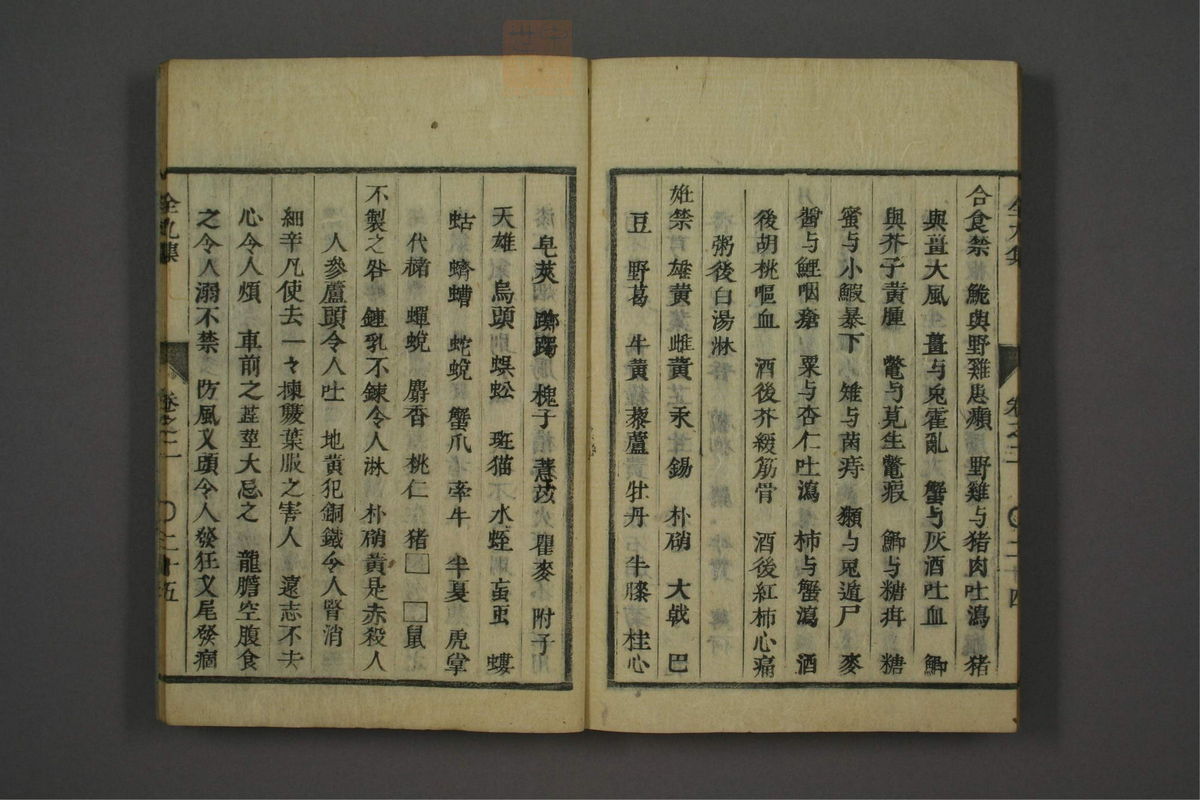 合食禁 鮠與野雞患癩 野雞与猪肉吐瀉 猪
與薑大風 薑与兎霍亂 蟹与灰酒吐血 鯽
與芥子黃腫 鼈与莧生鼈瘕 鯽与糖疳 糖
蜜与小鰕暴下 雉与菌痔 獺与兎遁尸 麥
醬与鯉咽瘡 粟与杏仁吐瀉 柿与蟹瀉 酒
後胡桃嘔血 酒後芥緩筋骨 酒後紅柿心痛
粥後白湯淋
姙禁 雄黃 雌黃 汞 錫 朴硝 大戟 巴
豆 野葛 牛黃 藜蘆 牡丹 牛膝 桂心
皂莢 躑躅 槐子 薏苡 瞿麥 附子
天雄 烏頭 蜈蚣 斑猫 水蛭 䖟虫 螻
蛄 蠐螬 蛇蛻 蟹爪 牽牛 半夏 虎掌
代禇 蟬蛻 麝香 桃仁 猪□ □鼠
不製之咎 鍾乳不鍊令人淋 朴硝黃是赤殺人
人參蘆頭令人吐 地黃犯銅鐵令人腎消
細辛凡使去一々揀䨇葉服之害人 遠志不去
心令人煩 車前之莖大忌之 龍膽空腹食
之令人溺不禁 防風叉頭令人發狂叉尾發痼
全九集 卷之二 〇二十四
全九集 卷之二 〇二十五